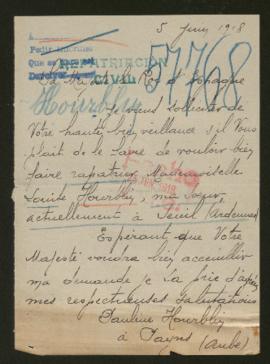 5 Juin 1918
57768
REPATRIATION
CIVIL
Sa Majesté le Roi d'Espagne
Je viens solliciter de
Votre haute bienveillance s'il Vous
plait de le faire de vouloir bien
faire rapatrier Mademoiselle
Louise Hourblin, ma sœur,
actuellement à (Ardennes)
Espérant que Votre
Majesté voudra bien accueillir
ma demande je la prie d'agréer
mes respectueuses salutations
Pauline Hourblin
à Payns (Aube)